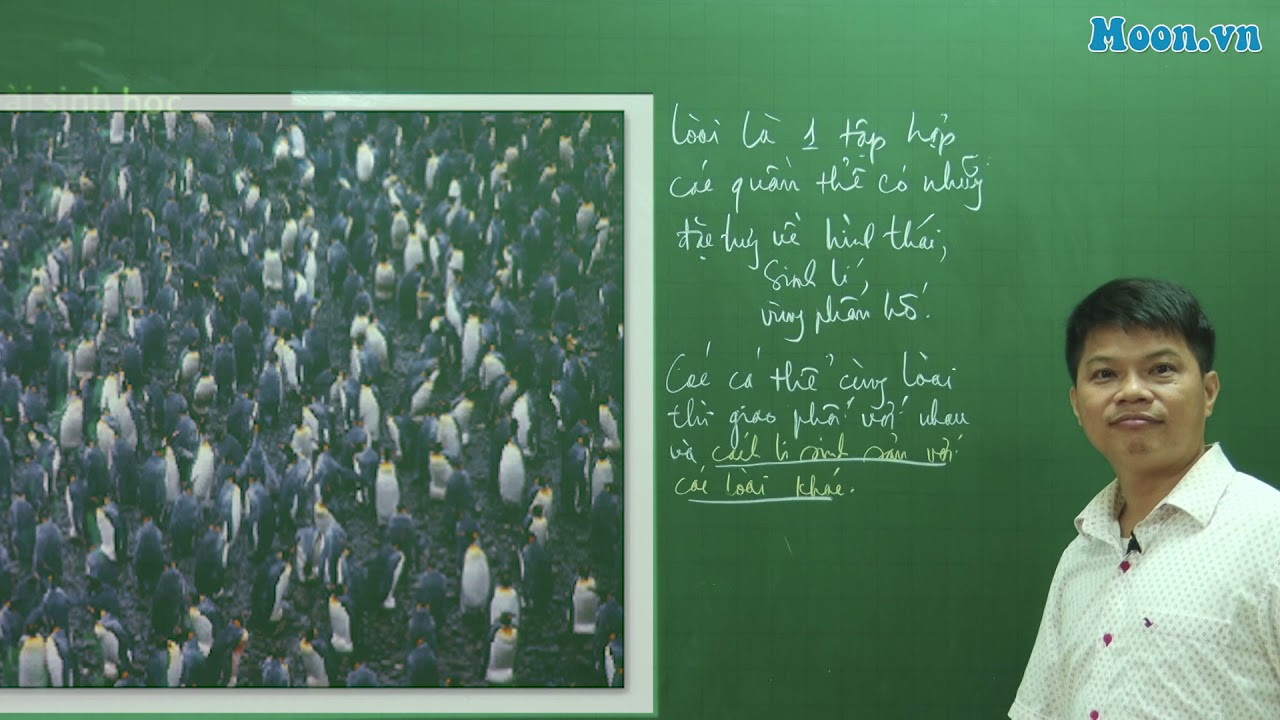 Moon.vn
ài sinh học
Loài là 1 tập hợp
các quần thể có những
đặc trưng về hình thái,
sinh lí,
vùng phân bố.
Các cá thể cùng loài
thì giao phối với nhau
và cách li sinh sản với
các loài khác.